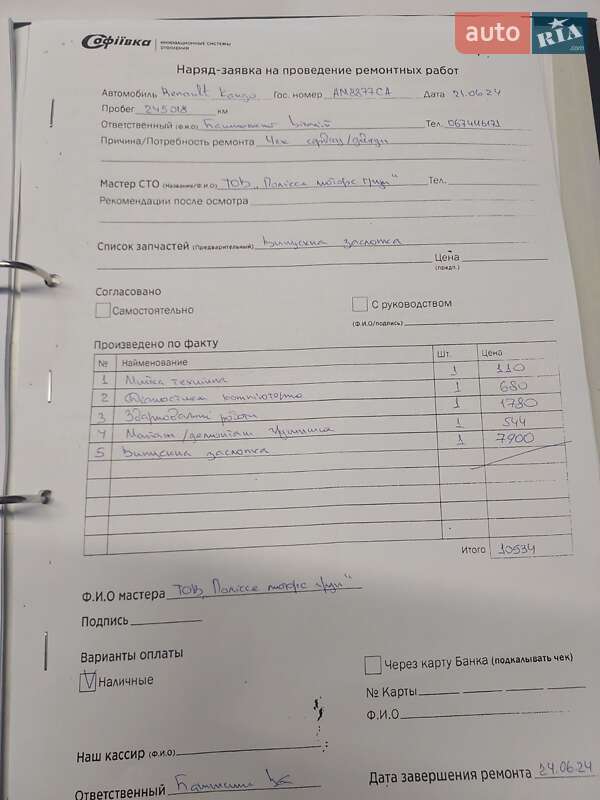 auto RIA .com
Софіївка ИННОВАЦИОННЫЕ СИСТЕМЫ ОТОПЛЕНИЯ
Наряд-заявка на проведение ремонтных работ
Автомобиль Renault Kango Гос. номер AM8277CA Дата 21.06.24
Пробег 245018 км
Ответственный (Ф.И.О) Тел. 067446171
Причина/Потребность ремонта Чек
Мастер СТО (Название/Ф.И.О) ТОВ „Полісся моторс груп" Тел.
Рекомендации после осмотра
Список запчастей (Предварительный) Випускна заслонка
Цена (предп.)
Согласовано
Самостоятельно С руководством
(Ф.И.О/подпись)
Произведено по факту
№ Наименование Шт. Цена
1 Мийка техніки 1 110
2 Діагностика комп'ютерна 1 680
3 роботи 1 1780
4 Монтаж/демонтаж 1 544
5 Випускна заслонка 1 7900
Итого 10534
Ф.И.О мастера ТОВ „Полісся моторс груп"
Подпись
Варианты оплаты
Наличные Через карту Банка (подкалывать чек)
№ Карты
Ф.И.О.
Наш кассир (Ф.И.О)
Ответственный Дата завершения ремонта 24.06.24